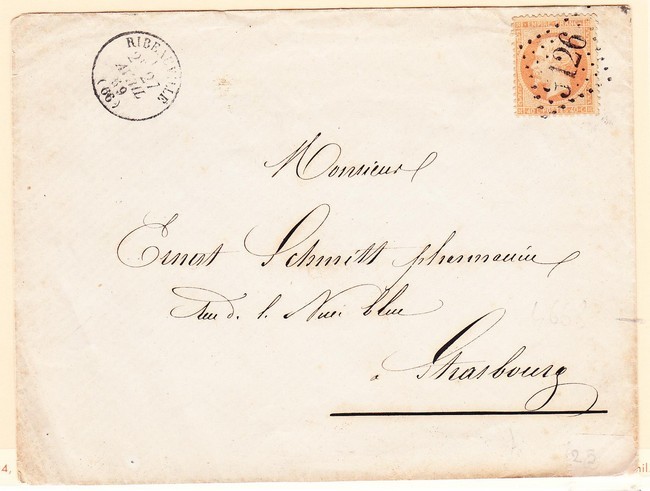 RIBEAUVILLE
27
AVRIL
69
(66)
EMPIRE
3126
Monsieur
Ernest Schmitt pharmacien
rue d. l. Nuée bleue
a Strasbourg
25
4,